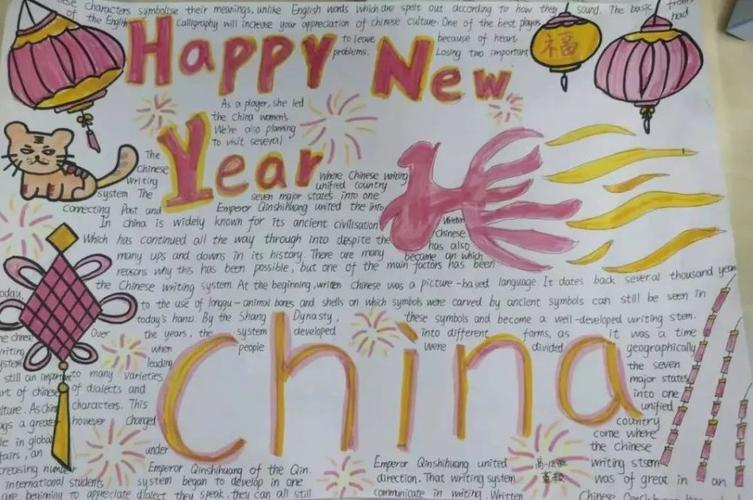 these Characters symbolise their meanings, unlike English words which are spelt out according to how they sound. The basic
of the English Calligraphy will increase your appreciation of Chinese culture. One of the best players had
to leave because of heart
problems. Losing two important
福
HAPPY New
Year
As a player, she led
the China women's
We're also planning
to visit several
The
Chinese
Writing
system The
Where Chinese writing
unified country
seven major states into one
Connecting Past and Emperor Qinshihuang united the into
In china is widely known for its ancient civilisation
Which has continued all the way through into despite the
many ups and downs in its history. There are many
reasons why this has been possible, but one of the main factors has been
Written
Chinese
has also
become an which
the Chinese writing system At the beginning, written Chinese was a picture-based language It dates back several thousand year
today, to the use of longgu-animal bones and shells on which symbols were carved by ancient symbols can still be seen in
today's hanzi. By the Shang Dynasty, these symbols and become a well-developed writing stem.
Over the years, the system developed into different forms, as it was a time
people were divided geographically
leading
the seven
major states
into one
unified
country
come where
the Chinese
writing stsem
was of great in an
China
still an important to many varieties
art of chinese of dialects and
culture. As China characters. This
a greater however changed
in global
affairs, an under
increasing number Emperor Qinshihuang of the Qin.
international students system began to develop in one
are beginning to appreciate dialect they speak, they can all still
Emperor Qinshihuang united
direction. That writing system
communicate in writing. Written